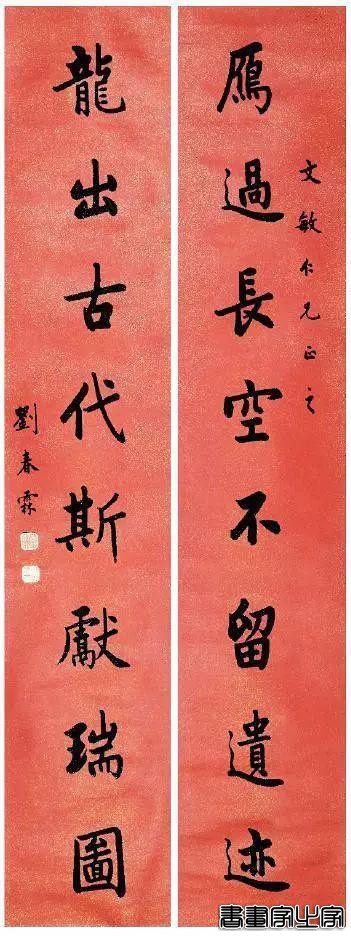 文敏仁兄正之
鴈過長空不留遺迹
龍出古代斯獻瑞圖
劉春霖
書畫家之家